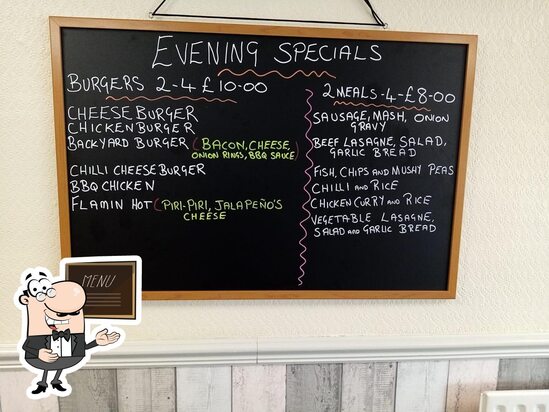 EVENING SPECIALS
BURGERS 2-4 £10-00
CHEESE BURGER
CHICKEN BURGER
BACKYARD BURGER (BACON, CHEESE,
ONION RINGS, BBQ SAUCE)
CHILLI CHEESE BURGER
BBQ CHICKEN
FLAMIN HOT (PIRI-PIRI, JALAPEÑO'S
CHEESE
2 MEALS-4-£8-00
SAUSAGE, MASH, ONION
GRAVY
BEEF LASAGNE, SALAD,
GARLIC BREAD
FISH, CHIPS AND MUSHY PEAS
CHILLI AND RICE
CHICKEN CURRY AND RICE
VEGETABLE LASAGNE,
SALAD AND GARLIC BREAD
MENU